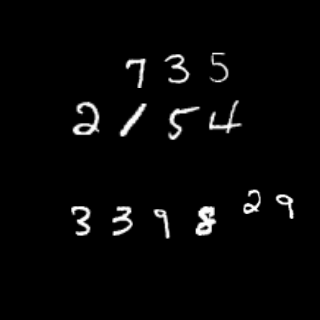 735
2154
339829